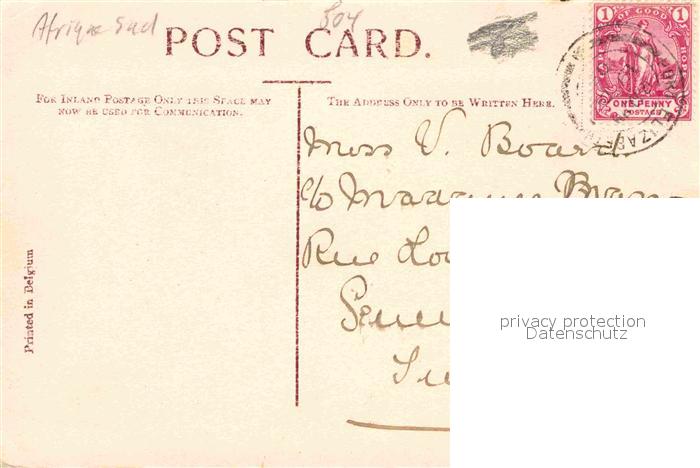 Afrique Sud
804
POST CARD.
1 OF GOOD 1
ONE PENNY
POSTAGE
For Inland Postage Only this Space may
now be used for Communication.
The Address Only to be Written Here.
Miss V. Board.
c/o Madame
Rue
Printed in Belgium
privacy protection
Darstellungsschutz